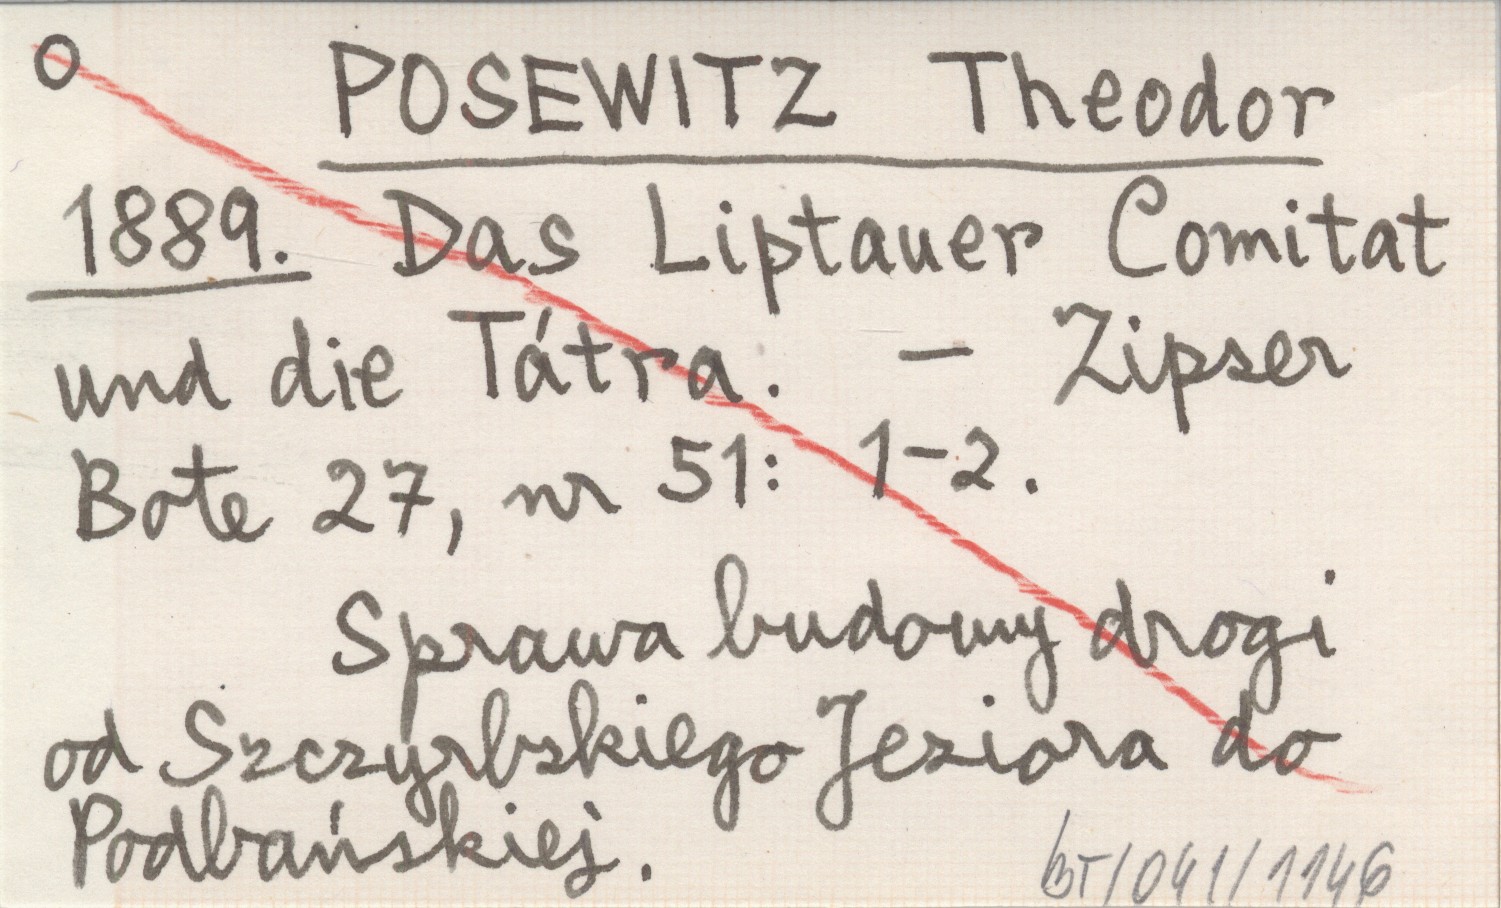 o POSEWITZ Theodor
1889. Das Liptauer Comitat
und die Tátra. – Zipser
Bote 27, nr 51: 1-2.
Sprawa budowy drogi
od Szczyrbskiego Jeziora do
Podbańskiej.
BT/041/1146